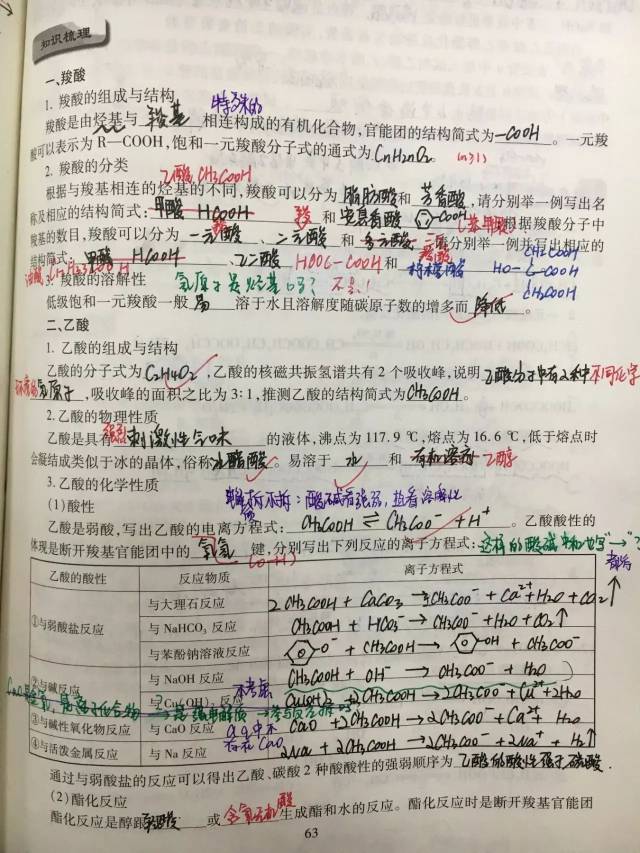 知识梳理
一、羧酸
1. 羧酸的组成与结构 特殊的
羧酸是由烃基与 羧基 相连构成的有机化合物,官能团的结构简式为 -COOH 。一元羧
酸可以表示为 R—COOH,饱和一元羧酸分子式的通式为 CnH2nO2。 (n≥1)
2. 羧酸的分类 乙酸 CH3COOH
根据与羧基相连的烃基的不同,羧酸可以分为 脂肪酸 和 芳香酸 ,请分别举一例写出名
称及相应的结构简式: 甲酸 HCOOH 和 -COOH (苯甲酸) 。根据羧酸分子中
羧基的数目,羧酸可以分为 一元酸 、 二元酸 和 多元酸 ,请分别举一例并写出相应的
CH2COOH
结构简式: 甲酸 HCOOH 、 乙二酸 HOOC-COOH 和 柠檬酸 HO-C-COOH
CH2COOH
3. 羧酸的溶解性 氢原子是烃基吗? 不是!
低级饱和一元羧酸一般 易 溶于水且溶解度随碳原子数的增多而 降低 。
二、乙酸
1. 乙酸的组成与结构
乙酸的分子式为 C2H4O2 ,乙酸的核磁共振氢谱共有 2 个吸收峰,说明 乙酸分子中有2种不同化学
环境的氢原子 ,吸收峰的面积之比为 3∶1,推测乙酸的结构简式为 CH3COOH 。
2. 乙酸的物理性质
乙酸是具有 强烈刺激性气味 的液体,沸点为 117.9 ℃,熔点为 16.6 ℃,低于熔点时
会凝结成类似于冰的晶体,俗称 冰醋酸 。易溶于 水 和 有机溶剂 乙醇
3. 乙酸的化学性质
(1)酸性
乙酸是弱酸,写出乙酸的电离方程式: CH3COOH ⇌ CH3COO⁻ + H⁺ 。乙酸酸性的
体现是断开羧基官能团中的 氧氢 键,分别写出下列反应的离子方程式: (O-H)
乙酸的酸性 反应物质 离子方程式
①与弱酸盐反应 与大理石反应 2CH3COOH + CaCO3 → 2CH3COO⁻ + Ca²⁺ + H2O + CO2↑
与 NaHCO3 反应 CH3COOH + HCO3⁻ → CH3COO⁻ + H2O + CO2↑
与苯酚钠溶液反应 -O⁻ + CH3COOH → -OH + CH3COO⁻
②与碱反应 与 NaOH 反应 CH3COOH + OH⁻ → CH3COO⁻ + H2O
与 Cu(OH)2 反应 Cu(OH)2 + 2CH3COOH → 2CH3COO⁻ + Cu²⁺ + 2H2O
③与碱性氧化物反应 与 CaO 反应 CaO + 2CH3COOH → 2CH3COO⁻ + Ca²⁺ + H2O
④与活泼金属反应 与 Na 反应 2Na + 2CH3COOH → 2CH3COO⁻ + 2Na⁺ + H2↑
通过与弱酸盐的反应可以得出乙酸、碳酸 2 种酸酸性的强弱顺序为 乙酸的酸性强于碳酸 .
(2)酯化反应
酯化反应是醇跟 羧酸 或 含氧无机酸 生成酯和水的反应。酯化反应时是断开羧基官能团
63